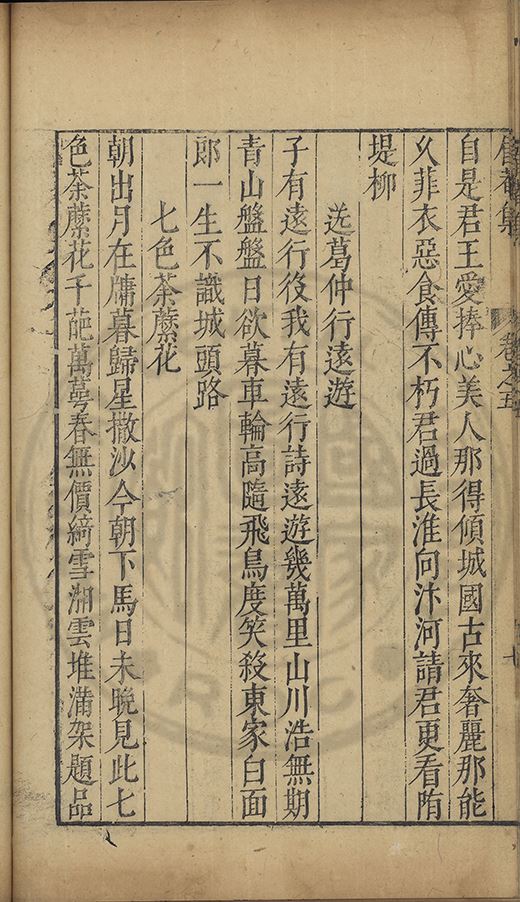 自是君王愛捧心美人那得傾城國古來奢麗那能
久菲衣惡食傳不朽君過長淮向汴河請君更看隋
堤柳
送葛仲行遠遊
子有遠行役我有遠行詩遠遊幾萬里山川浩無期
青山盤盤日欲暮車輪高隨飛鳥度笑殺東家白面
郎一生不識城頭路
七色荼蘼花
朝出月在牖暮歸星撒沙今朝下馬日未晚見此七
色荼蘼花千葩萬萼春無價縞雪湘雲堆滿架題品